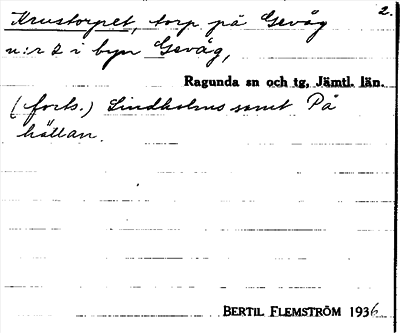 2.
Krustorpet, torp på Gevåg
n:r 2 i byn Gevåg,
Ragunda sn och tg, Jämtl. län.
(forts.) Lindholms samt På
hällan.
BERTIL FLEMSTRÖM 1936